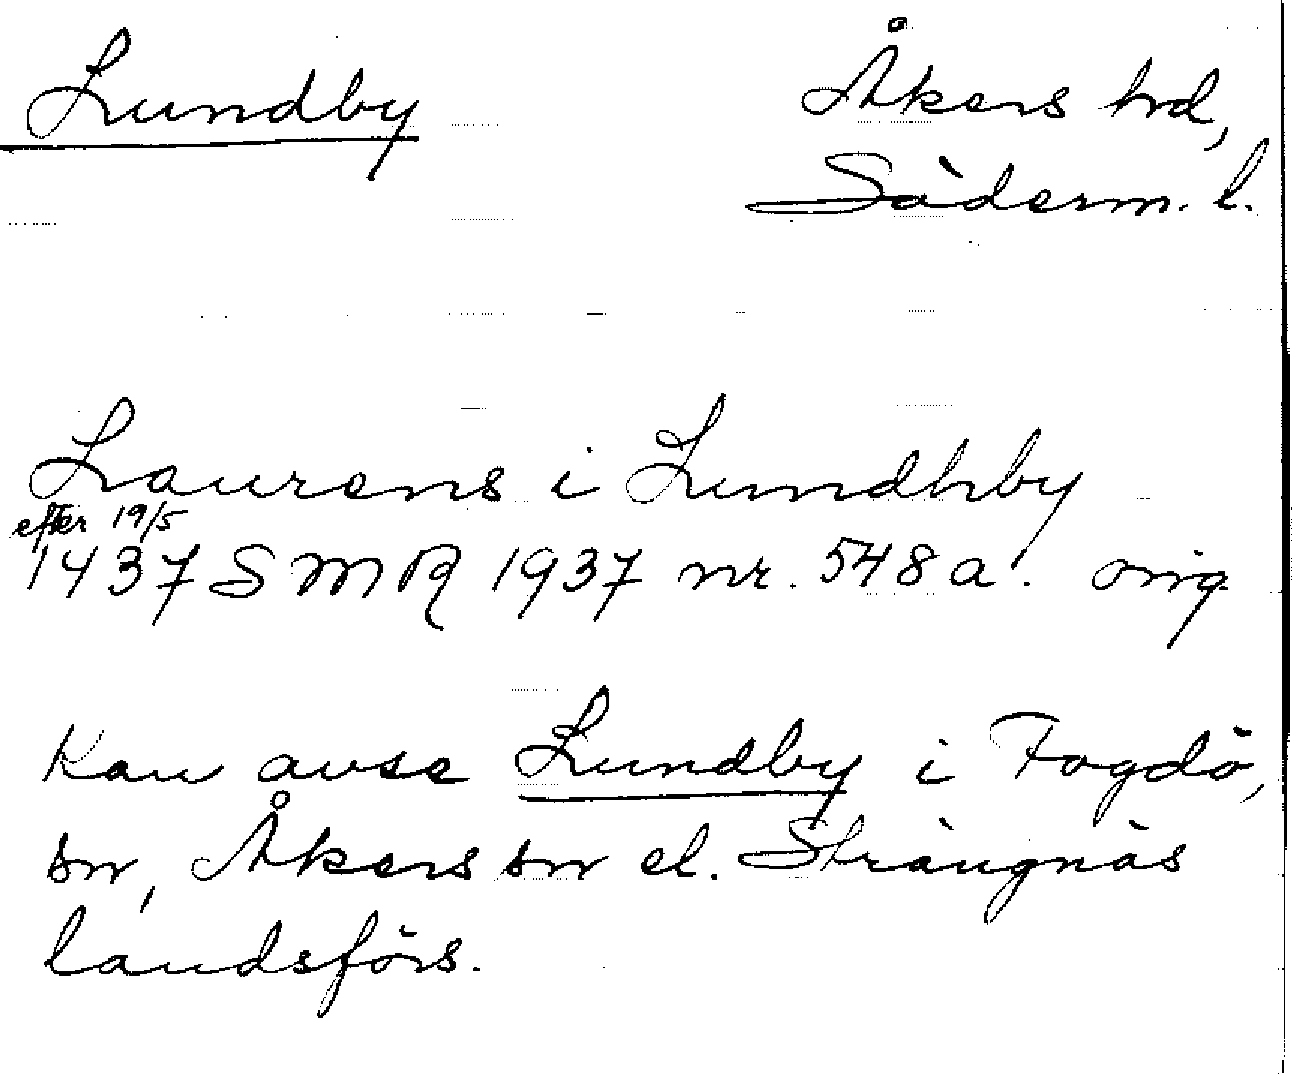 Lundby
Åkers hrd,
Söderm. l.
Laurens i Lundhby
efter 19/5
1437 SMR 1937 nr. 548 a. orig.
Kan avse Lundby i Fogdö,
sn, Åkers sn el. Strängnäs
landsförs.